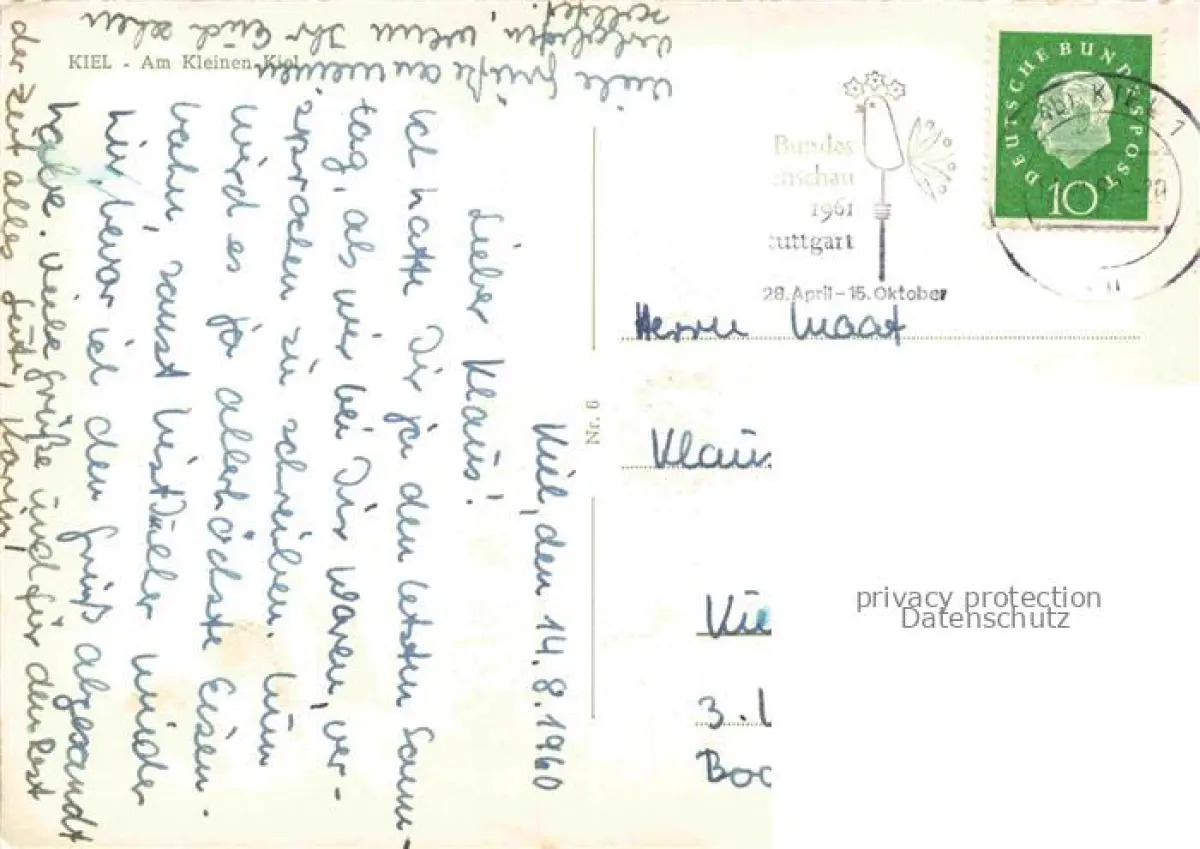 KIEL - Am Kleinen Kiel
Kiel, den 14.8.1960
Lieber Klaus!
Ich hatte Dir ja den letzten Sonn-
tag, als wir bei Dir waren, ver-
sprochen zu schreiben. Nun
wird es ja allerhöchste Eisen-
bahn, sonst bist Du eher wieder
hier, bevor ich den Gruß abgesandt
habe. Viele Grüße und für den Rest
der Zeit alles Gute, Karin!
Viele Grüße an meinen
wenn Ihr Euch sehen
solltet.
Nr. 6
Bundes
enschau
1961
tuttgart
28. April - 15. Oktober
DEUTSCHE BUNDESPOST
10
KIEL 1
Herrn Maat
Klaus
Kie
3.
Boo
privacy protection
Datenschutz